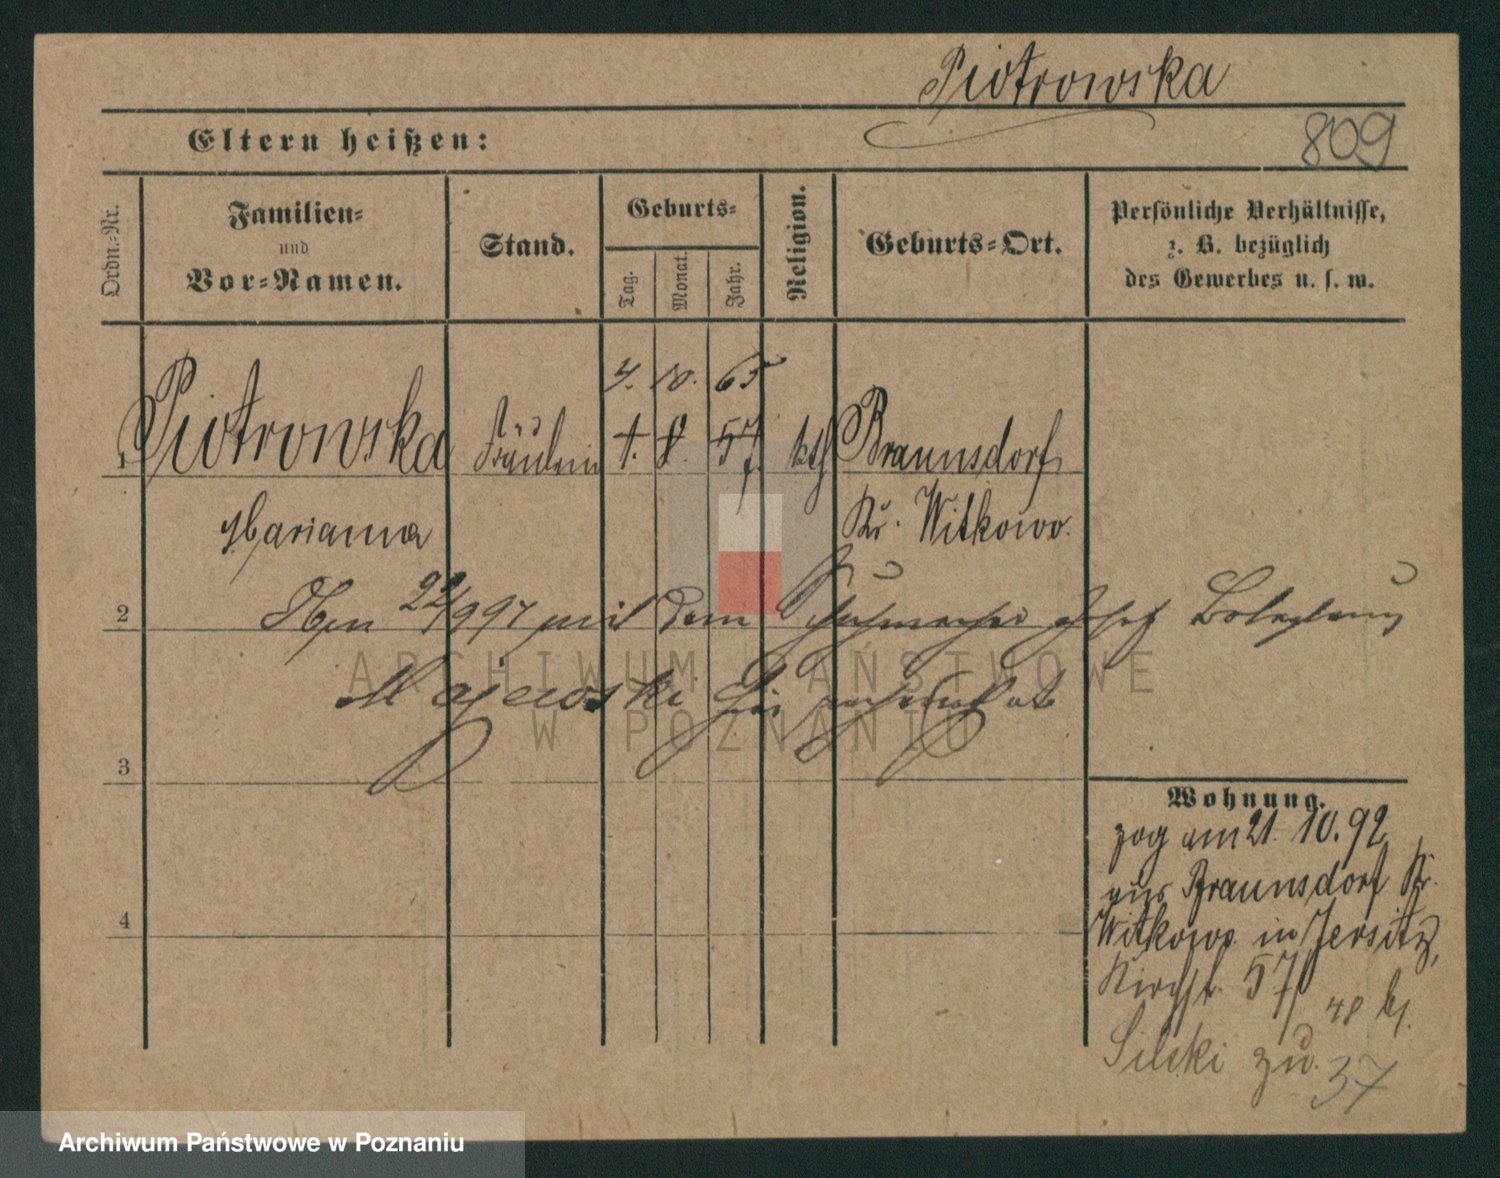 Piotrowska
Eltern heißen:
809
Ordn.-Nr.
Familien-
und
Vor-Namen.
Stand.
Geburts-
Tag.
Monat.
Jahr.
Religion.
Geburts-Ort.
Persönliche Verhältnisse,
z. B. bezüglich
des Gewerbes u. s. w.
4. 10. 65
1 Piotrowska Fräulein 1. 8. 57. kth Braunsdorf
Marianna Kr. Witkowo.
2 22/9 97 mit dem Schuhmacher Josef
3
4
Wohnung.
zog am 21. 10. 92
aus Braunsdorf Kr.
Witkowo in Jersitz,
Kirchstr. 57
48 bj.
Silski zu.
37
ARCHIWUM PAŃSTWOWE
W POZNANIU
Archiwum Państwowe w Poznaniu